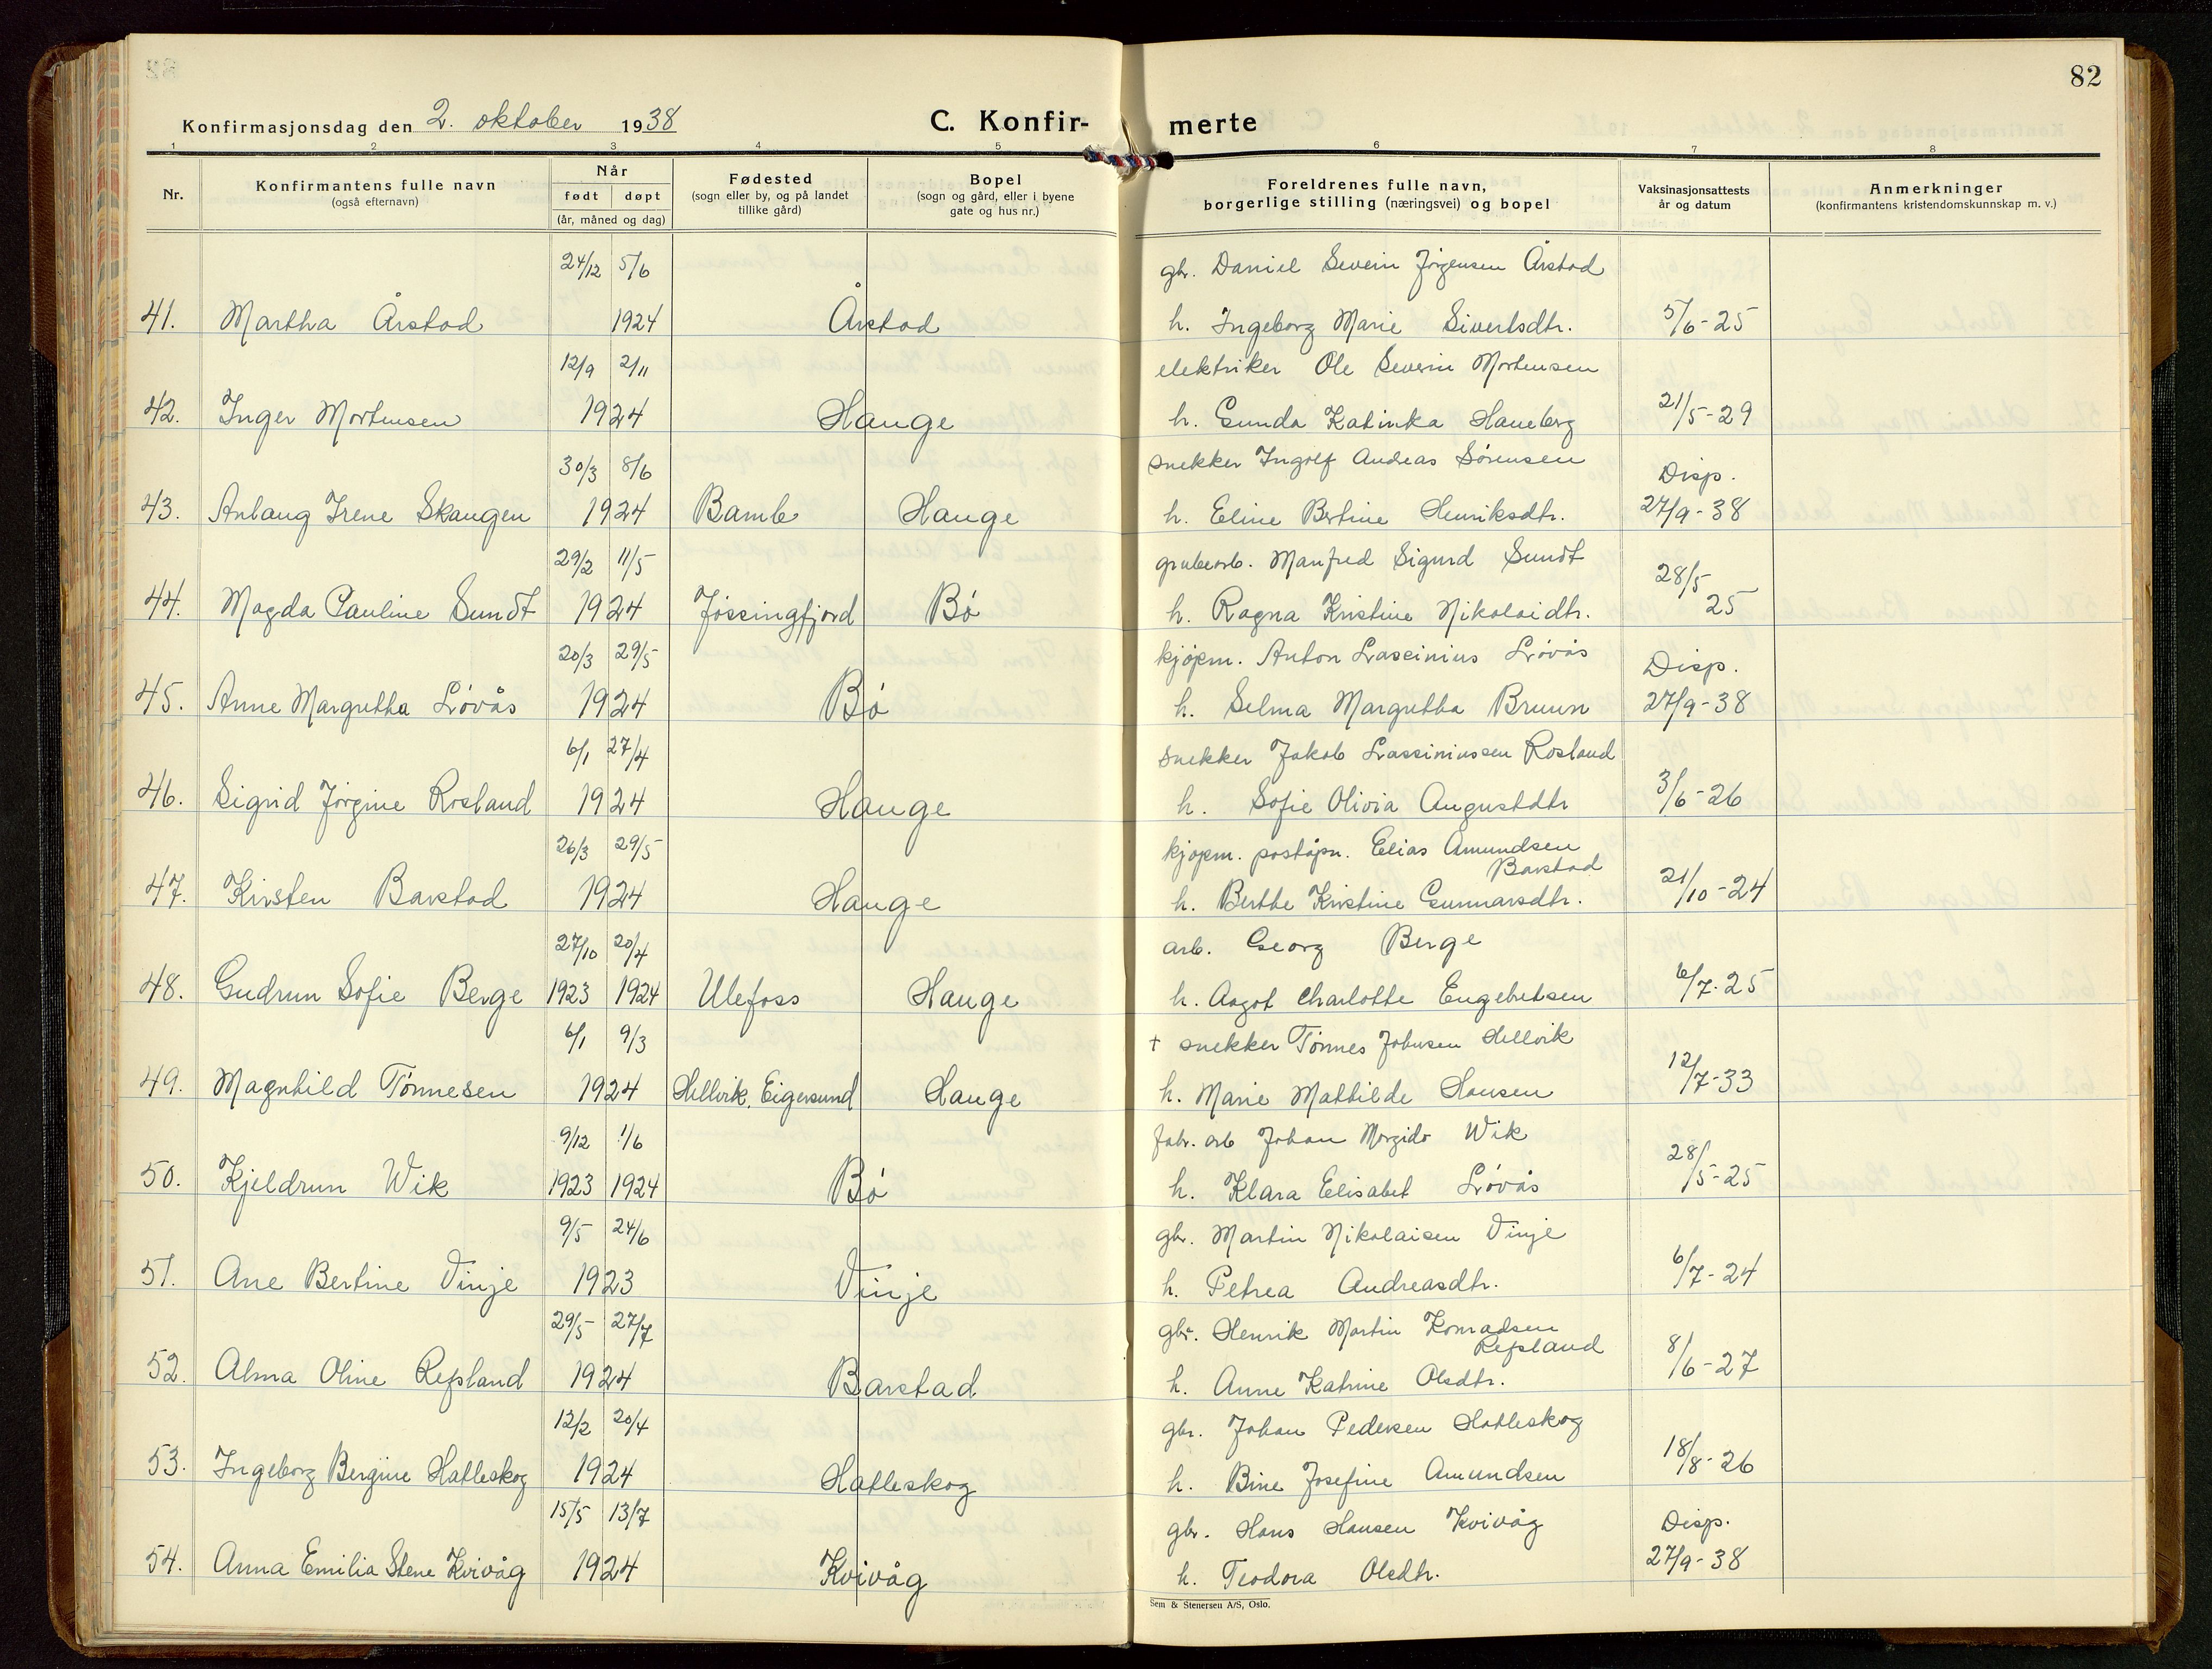 82
Konfirmasjonsdag den 2. oktober 1938
C. Konfir- merte
1 2 3 4 5 6 7 8
Nr.
Konfirmantens fulle navn
(også efternavn)
Når
født døpt
(år, måned og dag)
Fødested
(sogn eller by, og på landet
tillike gård)
Bopel
(sogn og gård, eller i byene
gate og hus nr.)
Foreldrenes fulle navn,
borgerlige stilling (næringsvei) og bopel
Vaksinasjonsattests
år og datum
Anmerkninger
(konfirmantens kristendomskunnskap m. v.)
24/12 5/6 gbr. Daniel Severin Jörgensen Årstad
41. Martha Årstad 1924 Årstad h. Ingeborg Marie Sivertsdtr. 5/6-25
12/9 2/11 elektriker Ole Severin Mortensen
42. Inger Mortensen 1924 Hauge h. Gunda Katinka Haneberg 21/5-29
30/3 8/6 snekker Ingolf Andreas Sörensen Disp.
43. Anlaug Irene Skaugen 1924 Bamle Hauge h. Eline Bertine Henriksdtr. 27/9-38
29/2 11/5 grubearb. Manfred Sigurd Sundt 28/5
44. Magda Pauline Sundt 1924 Jössingfjord Bö h. Ragna Kristine Nikolaidtr. 25
20/3 29/5 kjöpm. Anton Lassinius Lövås Disp.
45. Anne Margretha Lövås 1924 Bö h. Selma Margretha Bruun 27/9-38
6/1 27/4 snekker Jakob Lassiniussen Rosland
46. Sigrid Jörgine Rosland 1924 Hauge h. Sofie Olivia Augustdtr 3/6-26
26/3 29/5 kjöpm. poståpn. Elias Amundsen
Barstad
47. Kirsten Barstad 1924 Hauge h. Berthe Kristine Gunnarsdtr. 21/10-24
27/10 20/4 arb. Georg Berge
48. Gudrun Sofie Berge 1923 1924 Ulefoss Hauge h. Aagot Charlotte Engebretsen 6/7-25
6/1 9/3 † snekker Tönnes Johnsen Hellvik
49. Magnhild Tönnesen 1924 Hellvik, Eigersund Hauge h. Marie Mathilde Hansen 12/7-33
9/12 1/6 fabr. arb Johan Morgido Wik
50. Kjeldrun Wik 1923 1924 Bö h. Klara Elisabet Lövås 28/5-25
9/5 24/6 gbr. Martin Nikolaisen Vinje
51. Ane Bertine Vinje 1923 Vinje h. Petrea Andreasdtr. 6/7-24
29/5 27/7 gbr. Henrik Martin Konradsen
Refsland
52. Alma Oline Refsland 1924 Barstad h. Anne Katrine Olsdtr. 8/6-27
12/2 20/4 gbr. Johan Pedersen Hatleskog
53. Ingeborg Bergine Hatleskog 1924 Hatleskog h. Bine Josefine Amundsen 18/8-26
15/5 13/7 gbr. Hans Hansen Kvivåg Disp.
54. Anna Emilia Stene Kvivåg 1924 Kvivåg h. Teodora Olsdtr. 27/9-38
Sem & Stenersen A/S, Oslo.